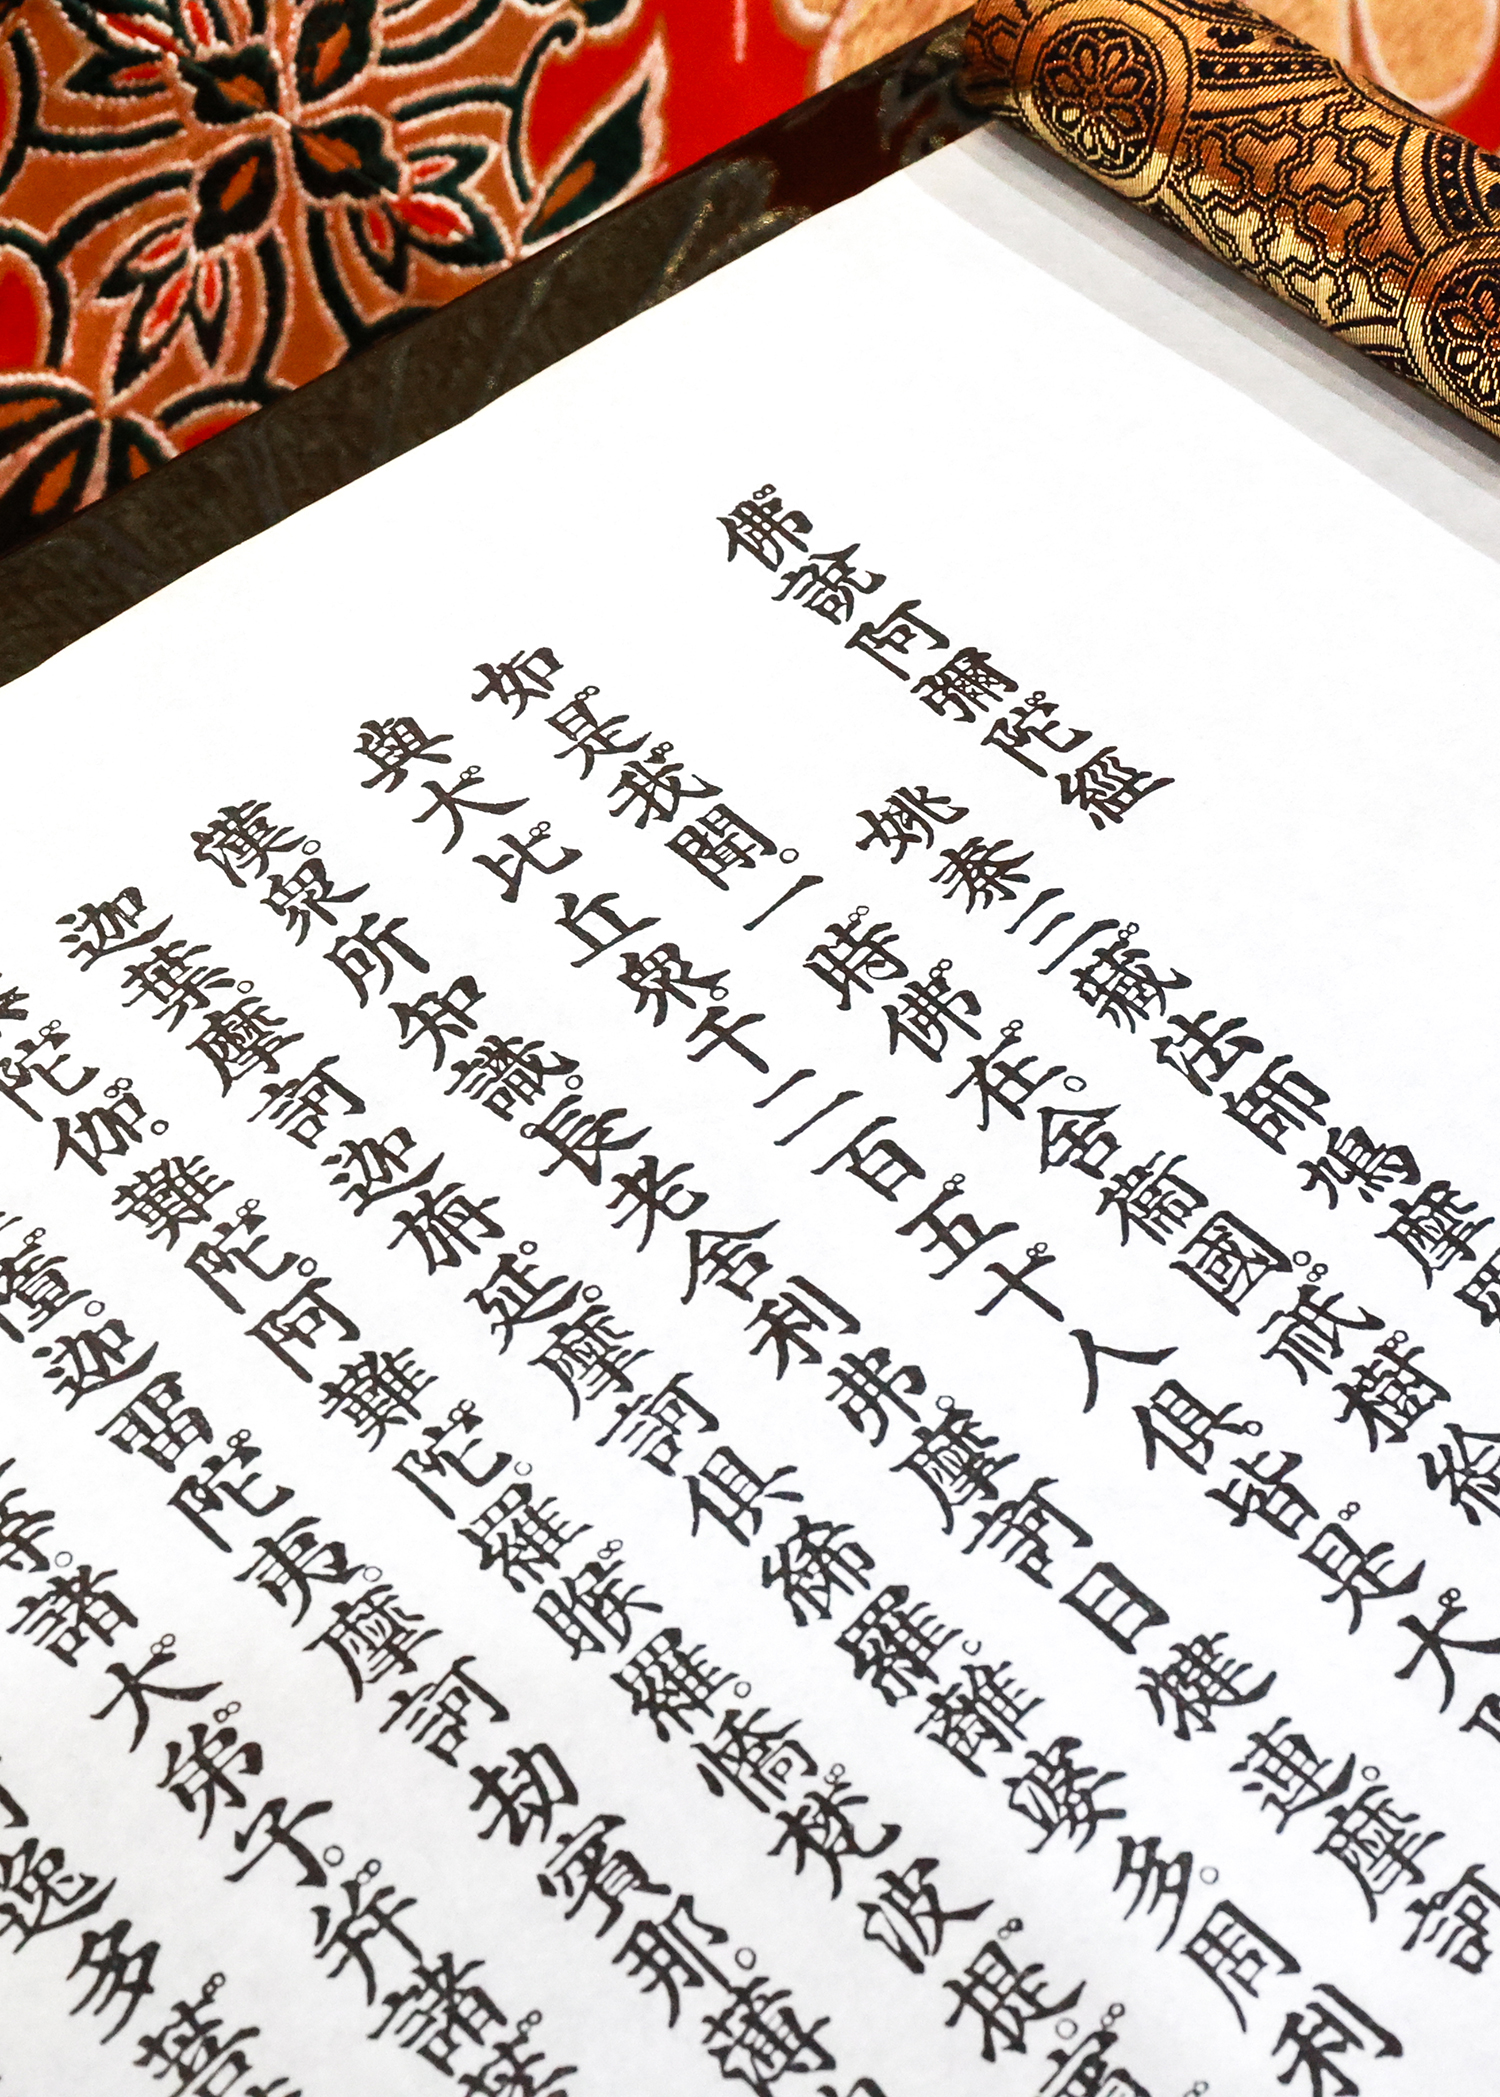 佛說阿彌陀經
姚秦三藏法師鳩摩
如是我聞。一時佛在。舍衞國。祇樹給
與大比丘衆。千二百五十人俱。皆是大
漢。衆所知識。長老舍利弗。摩訶目犍連。摩訶
迦葉。摩訶迦旃延。摩訶俱絺羅。離婆多。周利
陀伽。難陀。阿難陀。羅睺羅。憍梵波提。賓
墮。迦留陀夷。摩訶劫賓那。薄
等。諸大弟子。幷諸菩
逸多菩